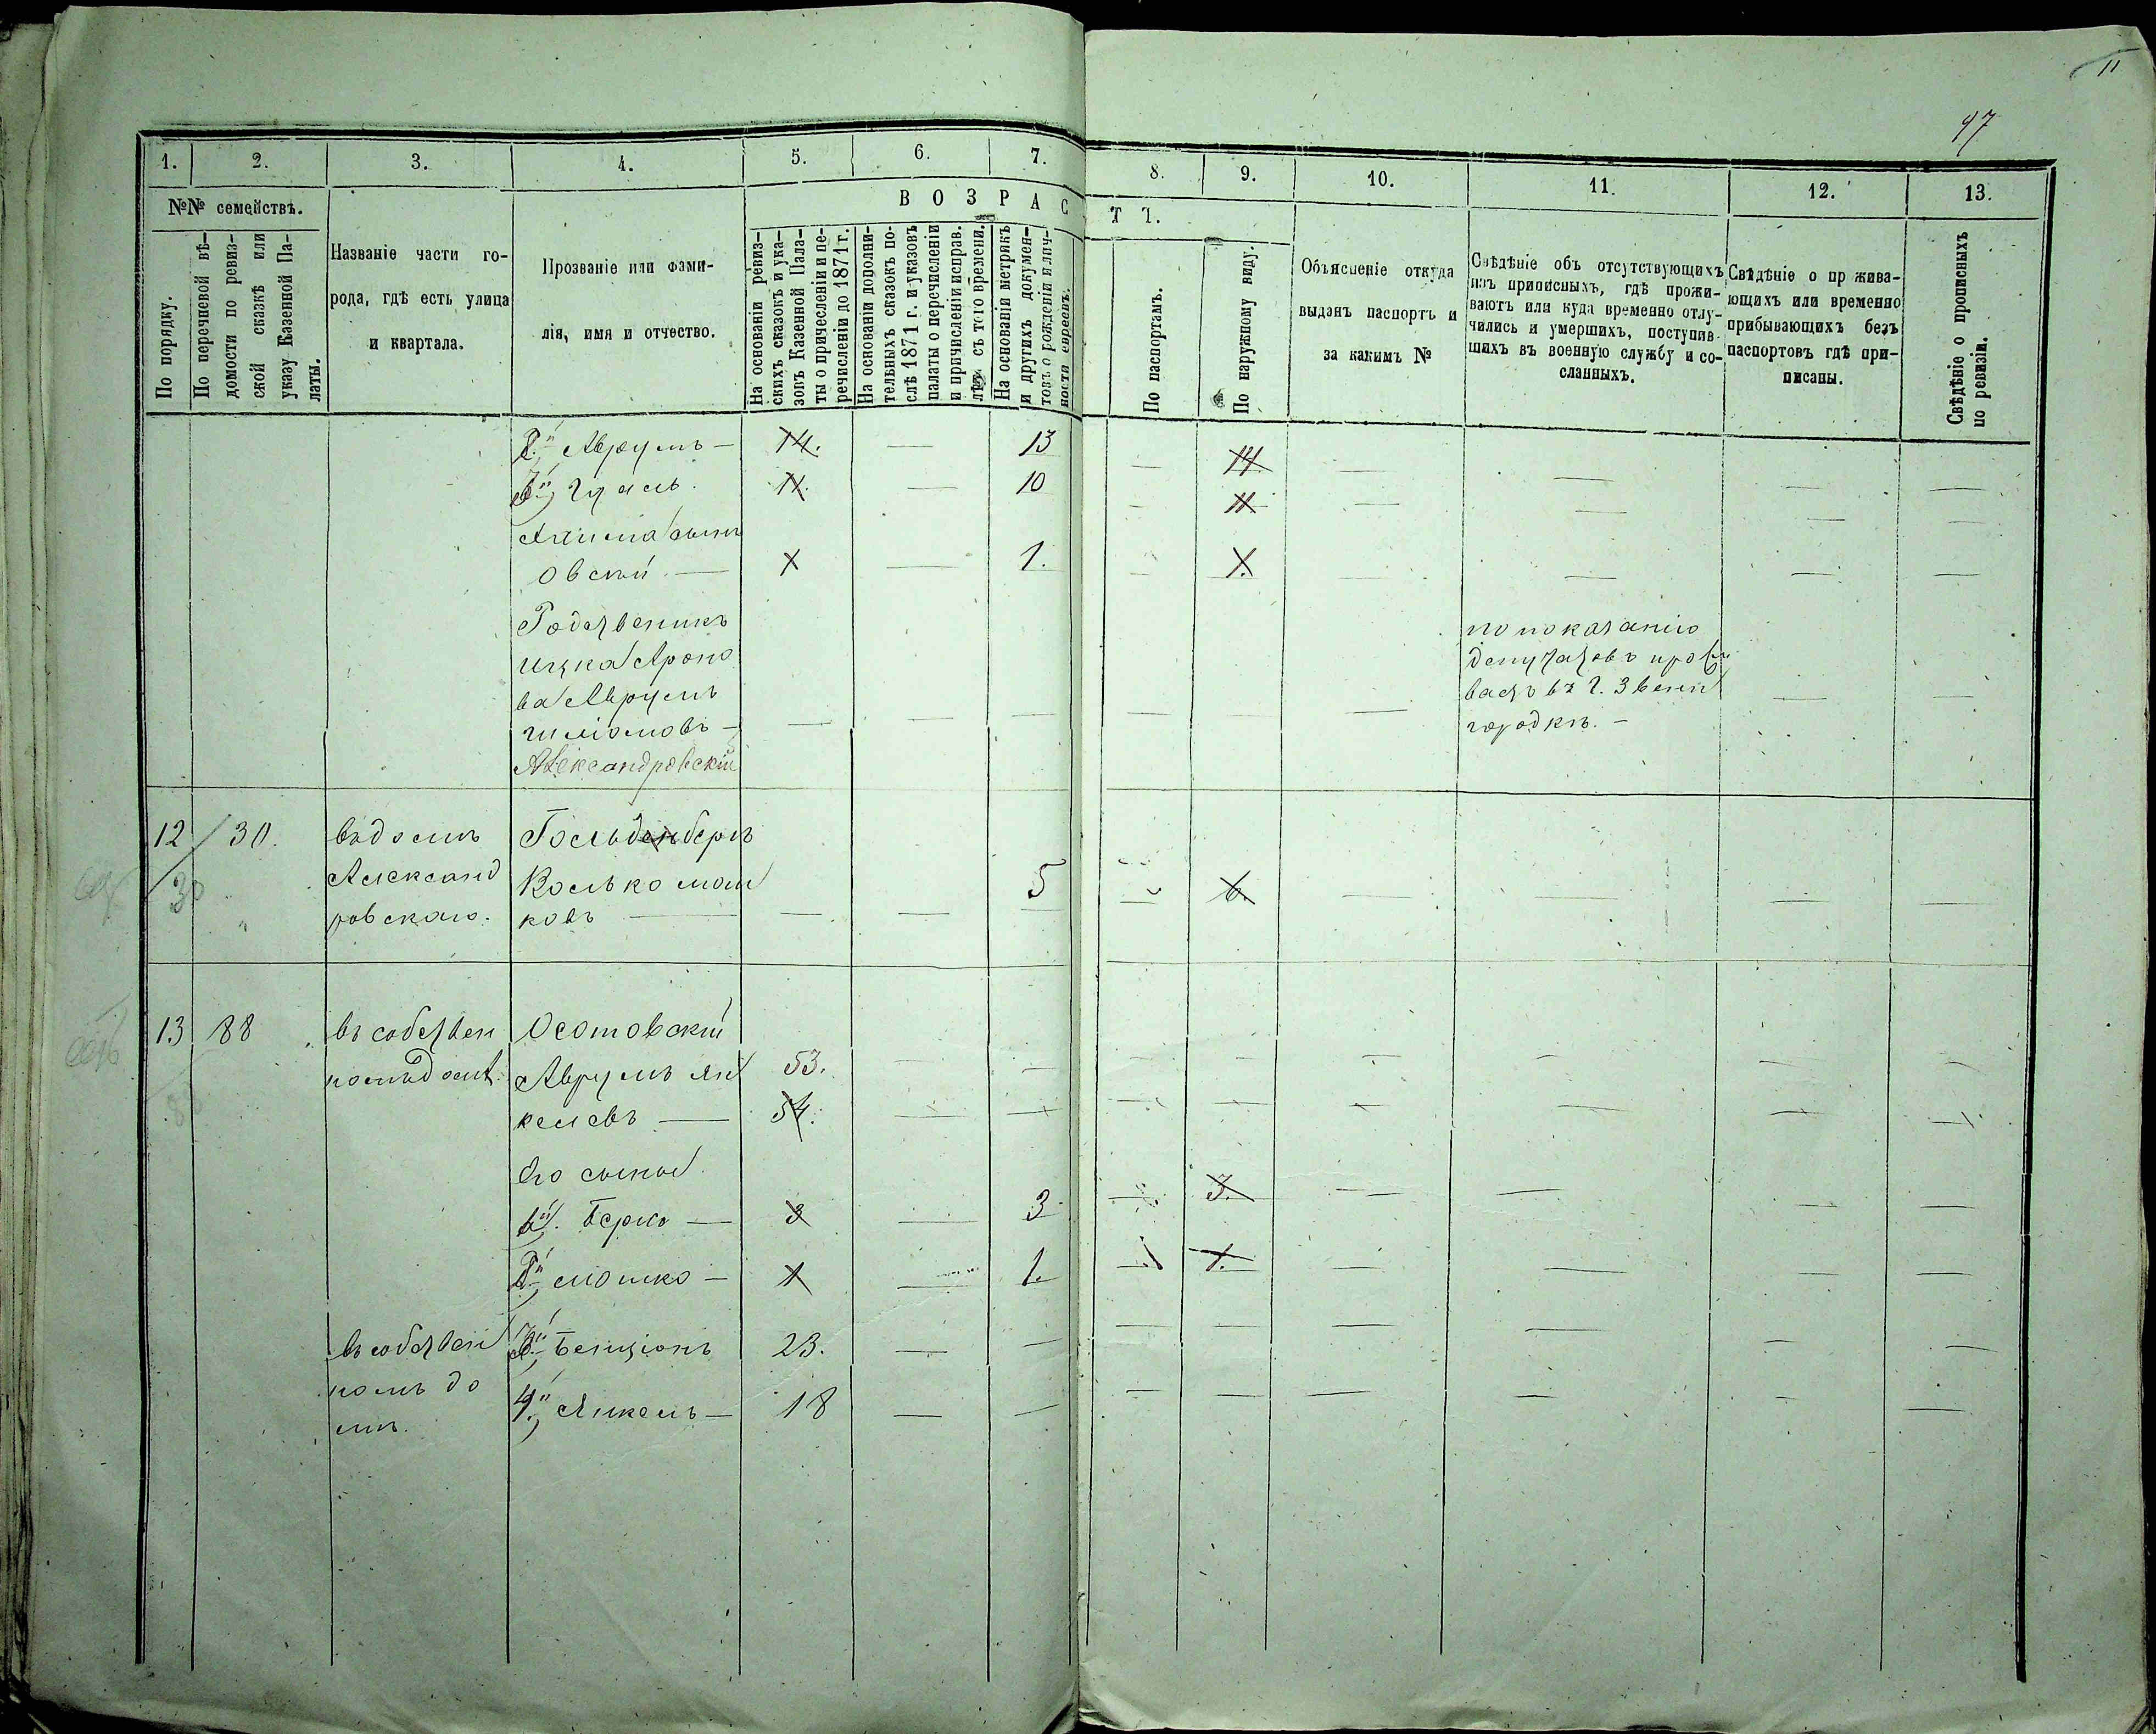 11
97
1. 2. 3. 4. 5. 6. 7. 8. 9. 10. 11. 12. 13.
№№ семействъ.
По порядку.
По перечневой вѣ-
домости по ревиз-
ской сказкѣ или
указу Казенной Па-
латы.
Названіе части го-
рода, гдѣ есть улица
и квартала.
Прозваніе или фами-
лія, имя и отчество.
ВОЗРАС
ТЪ.
На основаніи ревиз-
скихъ сказокъ и ука-
зовъ Казенной Пала-
ты о причисленіи и пе-
речисленіи до 1871 г.
На основаніи дополни-
тельныхъ сказокъ по-
слѣ 1871 г. и указовъ
палаты о перечисленіи
и причисленіи исправ.
съ того времени.
На основаніи метрикъ
и другихъ докумен-
товъ о рожденіи и лич-
ности евреевъ.
По паспортамъ.
По наружному виду.
Объясненіе откуда
выданъ паспортъ и
за какимъ №
Свѣдѣніе объ отсутствующихъ
изъ приписныхъ, гдѣ прожи-
ваютъ или куда временно отлу-
чились и умершихъ, поступив-
шихъ въ военную службу и со-
сланныхъ.
Свѣдѣніе о пр жива-
ющихъ или временно
прибывающихъ безъ
паспортовъ гдѣ при-
писаны.
Свѣдѣніе о прописныхъ
по ревизіи.
2й Аврумъ — 14. — 13 — 14 — — — —
11. — 10 — 11 — — — —
сынъ
Овсей — 1 — 1. — 1. — — — —
Родственикъ
Ицка Ароно
ва Аврумъ
Шліомовъ —
Александровскій
по показанію
депутатовъ прожи
ваетъ въ г. Звени
городкѣ. —
12 30. въ домѣ Гольденберъ
30 Александ Волько Мош 5 — 6 — — — —
ровскаго. ковъ —
13 88 въ собствен Осотовскій
номъ домѣ. Аврумъ Ян 53.
келевъ — 54.
Его сыновья
1й. Берко — 3 — 3 — 3. — — — —
2й Мошко — 1 — 1. — 1. — — — —
въ собствен 3й Бенціонъ 23. — —
номъ до 4й Янкель — 18 — —
мѣ.